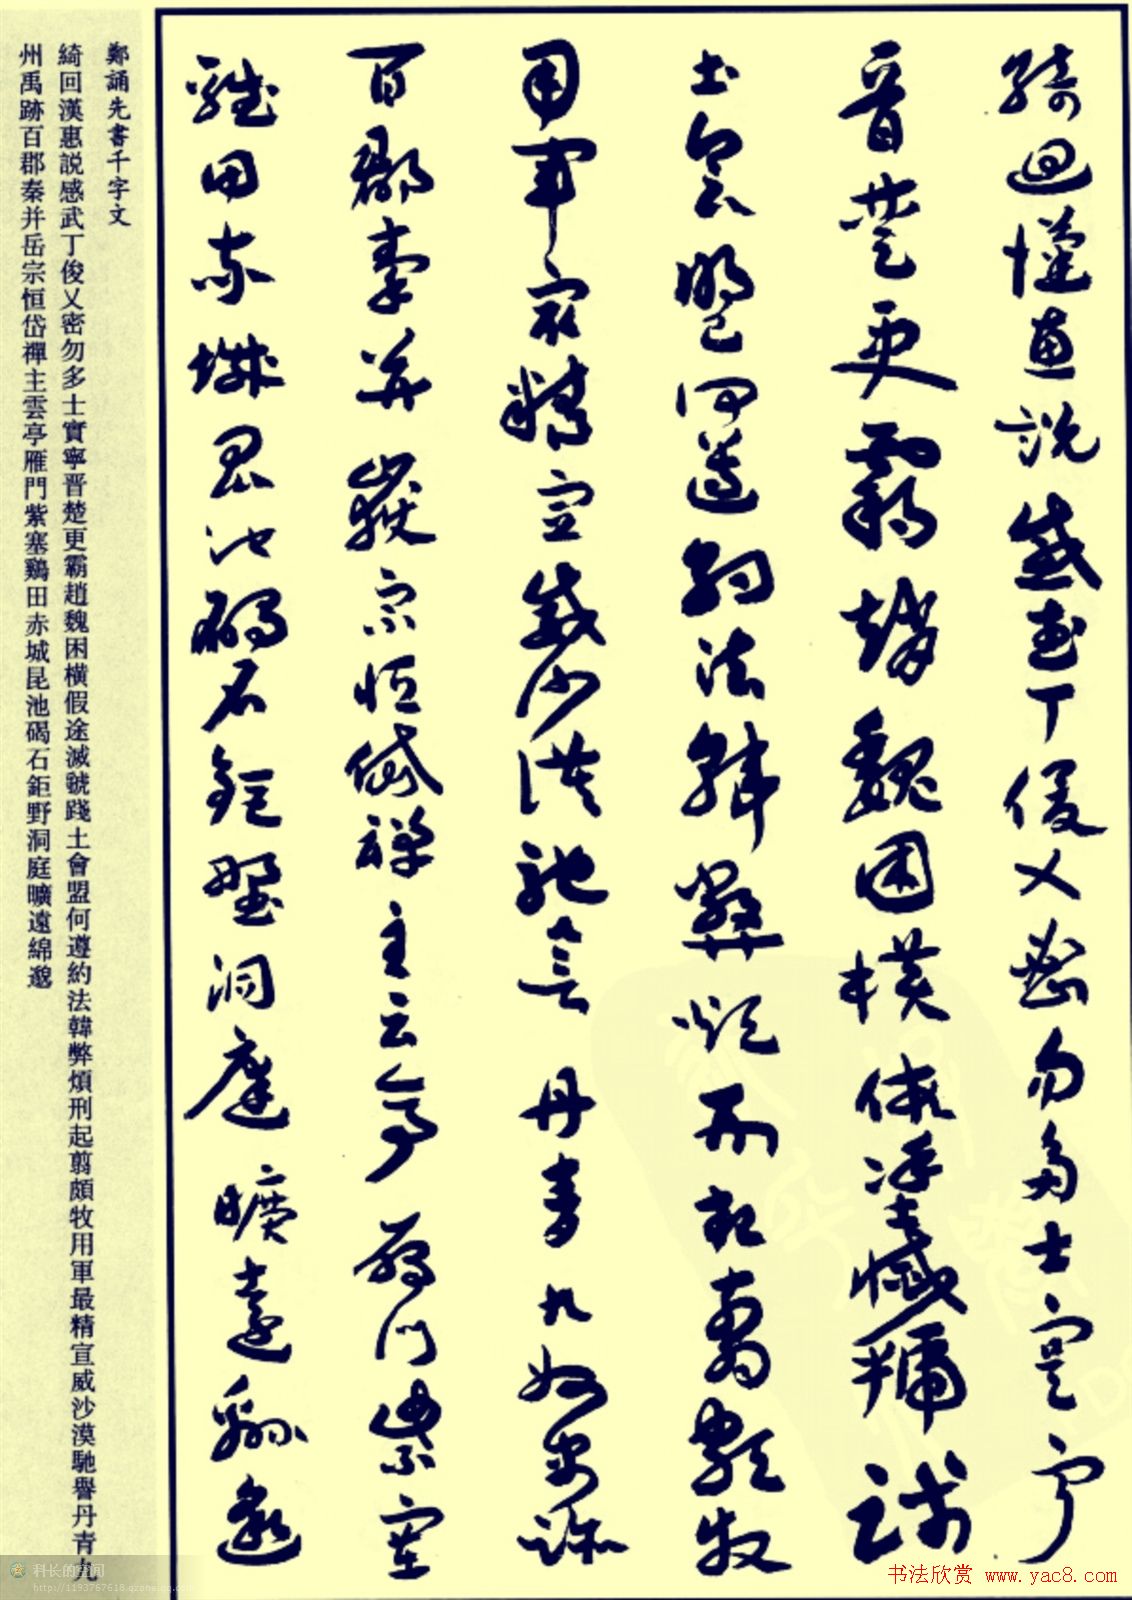 綺迴漢惠説感武丁俊乂密勿多士寔寧
晉楚更霸趙魏困橫假途滅虢踐
土會盟何遵約法韓弊煩刑起翦頗牧
用軍最精宣威沙漠馳譽丹青九州禹跡
百郡秦并嶽宗恒岱禪主云亭雁門紫塞
雞田赤城昆池碣石鉅野洞庭曠遠綿邈
鄭誦先書千字文
綺回漢惠説感武丁俊乂密勿多士實寧晋楚更霸趙魏困橫假途滅虢踐土會盟何遵約法韓弊煩刑起翦頗牧用軍最精宣威沙漠馳譽丹青九
州禹跡百郡秦并岳宗恒岱禪主雲亭雁門紫塞鷄田赤城昆池碣石鉅野洞庭曠遠綿邈
科长的空间
http://1193767618.qzone.qq.com
书法欣赏 www.yac8.com